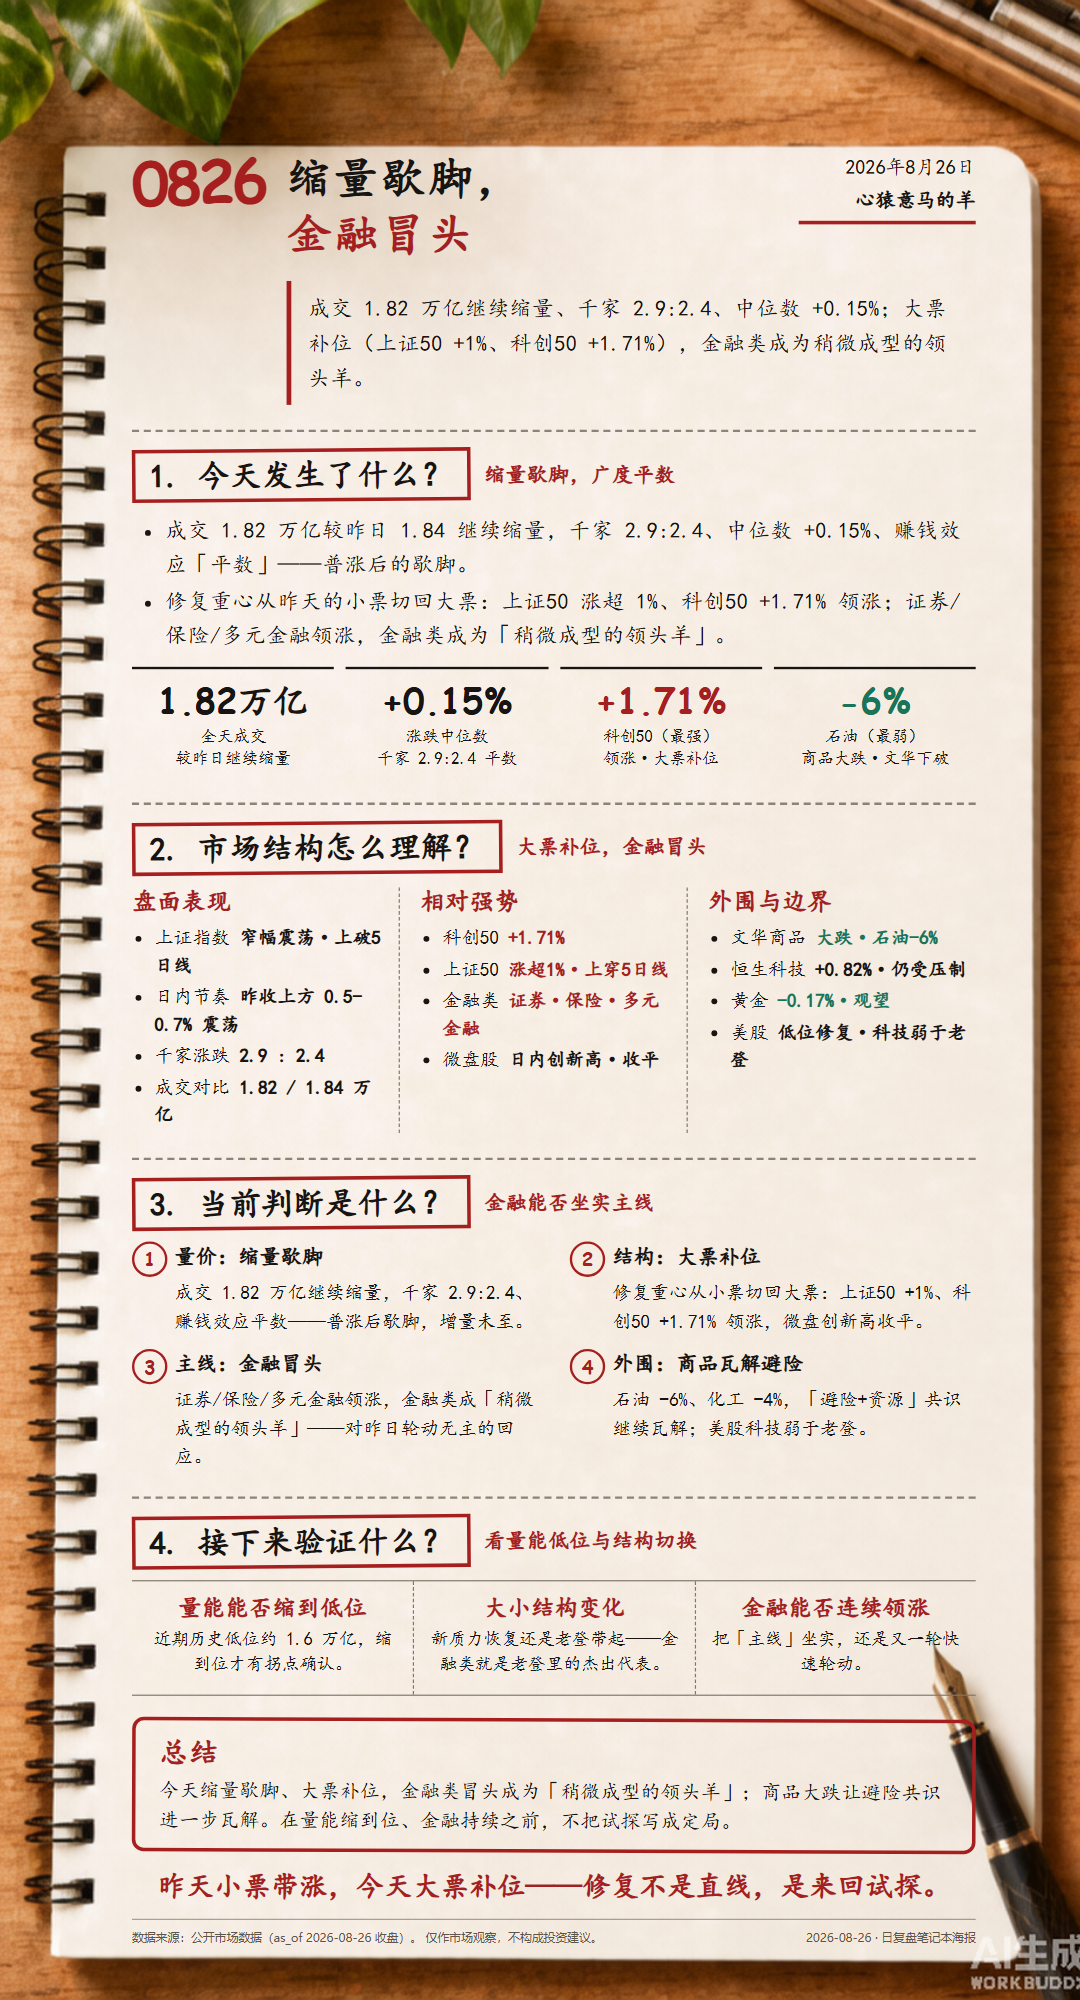 0826 缩量歇脚，
金融冒头
2026年8月26日
心猿意马的羊
成交 1.82 万亿继续缩量、千家 2.9:2.4、中位数 +0.15%；大票
补位（上证50 +1%、科创50 +1.71%），金融类成为稍微成型的领
头羊。
1. 今天发生了什么？ 缩量歇脚，广度平数
• 成交 1.82 万亿较昨日 1.84 继续缩量，千家 2.9:2.4、中位数 +0.15%、赚钱效
应「平数」——普涨后的歇脚。
• 修复重心从昨天的小票切回大票：上证50 涨超 1%、科创50 +1.71% 领涨；证券/
保险/多元金融领涨，金融类成为「稍微成型的领头羊」。
1.82万亿
全天成交
较昨日继续缩量
+0.15%
涨跌中位数
千家 2.9:2.4 平数
+1.71%
科创50（最强）
领涨·大票补位
-6%
石油（最弱）
商品大跌·文华下破
2. 市场结构怎么理解？ 大票补位，金融冒头
盘面表现
• 上证指数 窄幅震荡·上破5
日线
• 日内节奏 昨收上方 0.5-
0.7% 震荡
• 千家涨跌 2.9 : 2.4
• 成交对比 1.82 / 1.84 万
亿
相对强势
• 科创50 +1.71%
• 上证50 涨超1%·上穿5日线
• 金融类 证券·保险·多元
金融
• 微盘股 日内创新高·收平
外围与边界
• 文华商品 大跌·石油-6%
• 恒生科技 +0.82%·仍受压制
• 黄金 -0.17%·观望
• 美股 低位修复·科技弱于老
登
3. 当前判断是什么？ 金融能否坐实主线
1 量价：缩量歇脚
成交 1.82 万亿继续缩量，千家 2.9:2.4、
赚钱效应平数——普涨后歇脚，增量未至。
2 结构：大票补位
修复重心从小票切回大票：上证50 +1%、科
创50 +1.71% 领涨，微盘创新高收平。
3 主线：金融冒头
证券/保险/多元金融领涨，金融类成「稍微
成型的领头羊」——对昨日轮动无主的回
应。
4 外围：商品瓦解避险
石油 -6%、化工 -4%，「避险+资源」共识
继续瓦解；美股科技弱于老登。
4. 接下来验证什么？ 看量能低位与结构切换
量能能否缩到低位
近期历史低位约 1.6 万亿，缩
到位才有拐点确认。
大小结构变化
新质力恢复还是老登带起——金
融类就是老登里的杰出代表。
金融能否连续领涨
把「主线」坐实，还是又一轮快
速轮动。
总结
今天缩量歇脚、大票补位，金融类冒头成为「稍微成型的领头羊」；商品大跌让避险共识
进一步瓦解。在量能缩到位、金融持续之前，不把试探写成定局。
昨天小票带涨，今天大票补位——修复不是直线，是来回试探。
数据来源：公开市场数据（as_of 2026-08-26 收盘）。 仅作市场观察，不构成投资建议。
2026-08-26 · 日复盘笔记本海报
AI生成
WORKBUDDY